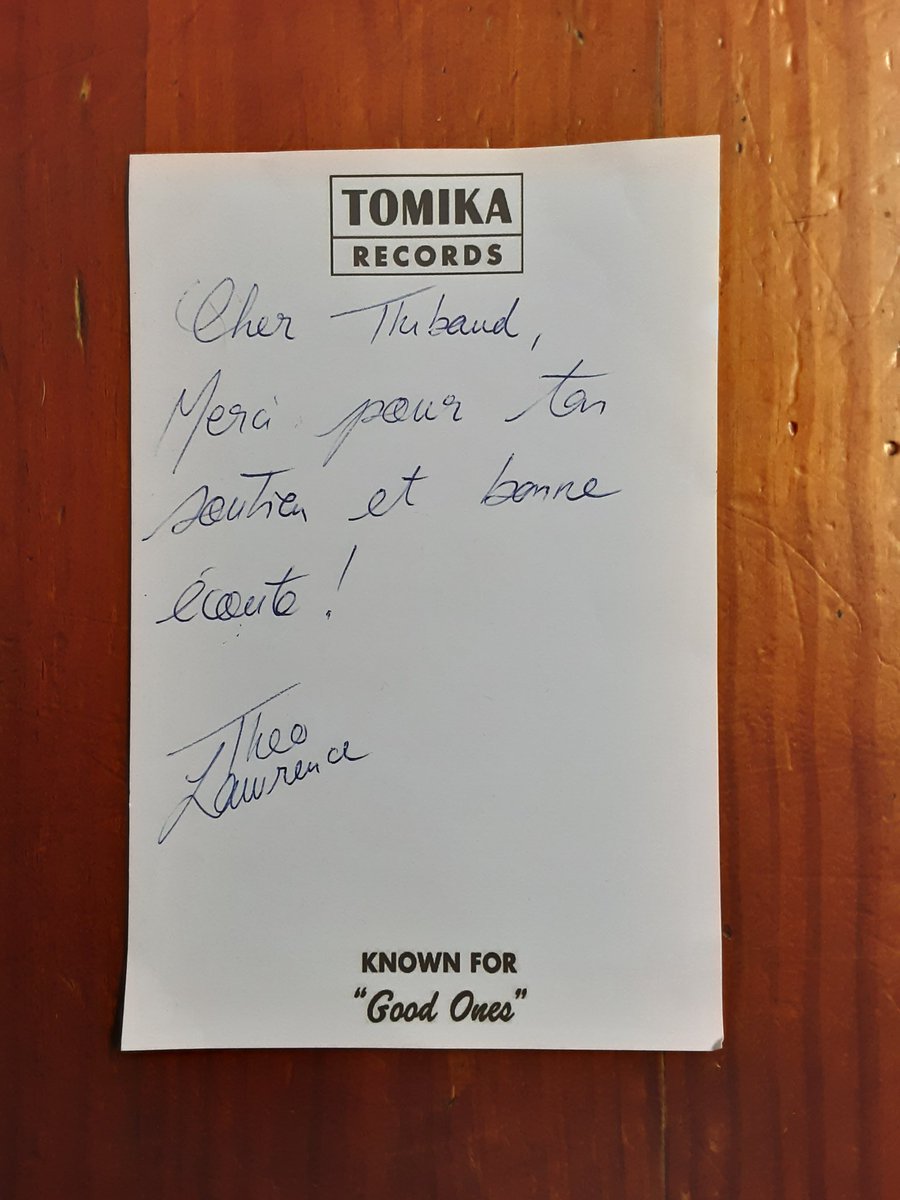 TOMIKA
RECORDS
Cher Thibaud,
Merci pour ton
soutien et bonne
écoute !
Theo
Lawrence
KNOWN FOR
"Good Ones"